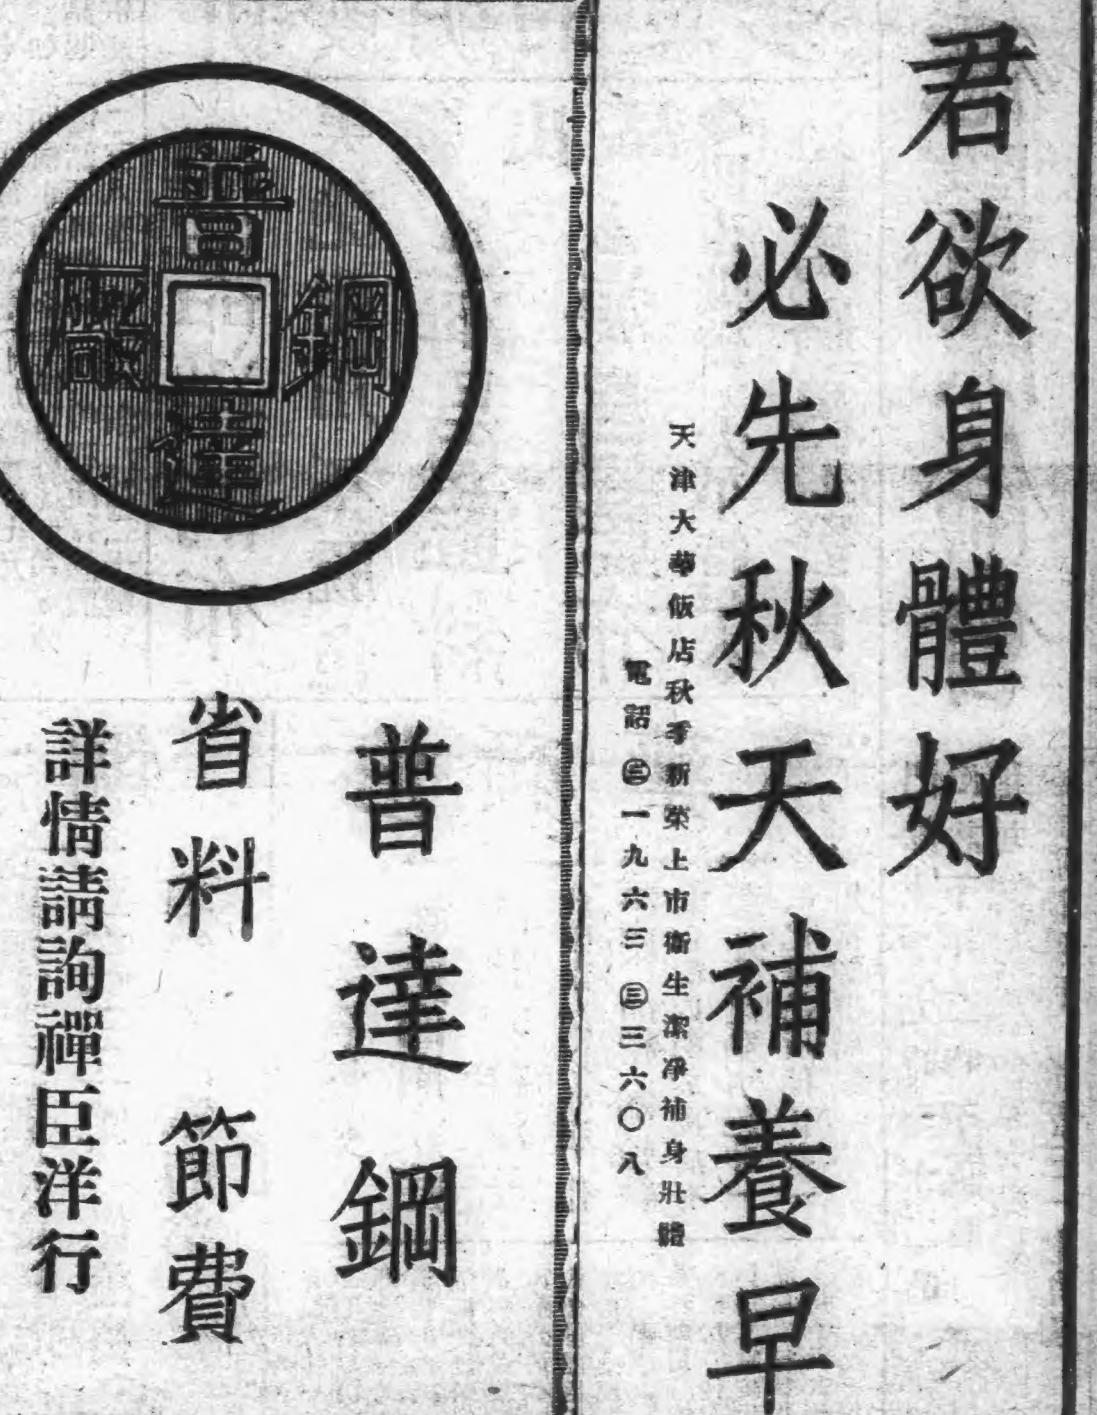 君欲身體好
必先秋天補養早
天津大華飯店秋季新菜上市衛生潔凈補身壯體
電話㊂一九六三 ㊂三六〇八
普達
鋼廠
普達鋼
省料 節費
詳情請詢禪臣洋行